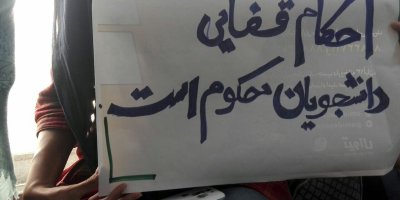 احکام قضایی
دانشجویان محکوم است